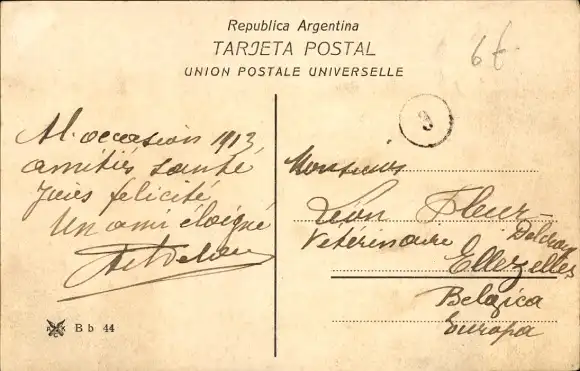 Republica Argentina
TARJETA POSTAL
UNION POSTALE UNIVERSELLE
6€
3
Al occasion 1913
amitiés santé
joies félicité
Un ami éloigné
Monsieur
Léon Fleur-
Delcroy
Vétérinaire
Ellezelles
Belgica
Europa
B b 44